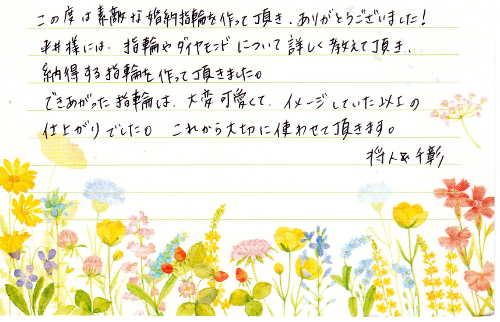 この度は素敵な婚約指輪を作って頂き、ありがとうございました!
様には、指輪やダイヤモンドについて詳しく教えて頂き、
納得する指輪を作って頂きました。
できあがった指輪は、大変可愛くて、イメージしていた以上の
仕上がりでした。これから大切に使わせて頂きます。
将人&千彰